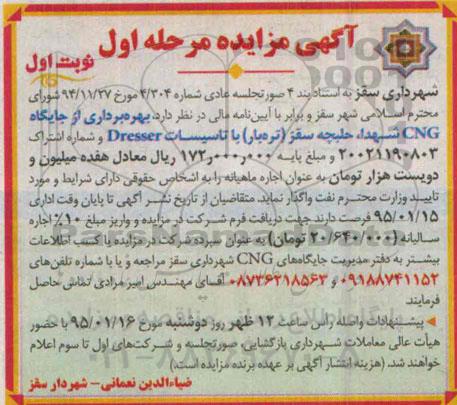 آگهی مزایده مرحله اول
نوبت اول
شهرداری سقز به استناد بند ۴ صورتجلسه عادی شماره ۴/۳۰۴ مورخ ۹۴/۱۱/۲۷ شورای
محترم اسلامی شهر سقز و برابر با آیین‌نامه مالی در نظر دارد، بهره‌برداری از جایگاه
CNG شهدا، حلبچه سقز (تره‌بار) با تاسیسات Dresser و شماره اشتراک
۲۰۰۲۱۱۹۰۸۰۳ و مبلغ پایه ۱۷۲٫۰۰۰٫۰۰۰ ریال معادل هفده میلیون و
دویست هزار تومان به عنوان اجاره ماهیانه را به اشخاص حقوقی دارای شرایط و مورد
تایید وزارت محترم نفت واگذار نماید. متقاضیان از تاریخ نشر آگهی تا پایان وقت اداری
۹۵/۰۱/۱۵ فرصت دارند جهت دریافت فرم شرکت در مزایده و واریز مبلغ ۱۰% اجاره
سالیانه (۲۰/۶۴۰/۰۰۰ تومان) به عنوان سپرده شرکت در مزایده یا کسب اطلاعات
بیشتر به دفتر مدیریت جایگاه‌های CNG شهرداری سقز مراجعه و یا با شماره تلفن‌های
۰۹۱۸۸۷۴۱۱۵۲ و ۰۸۷۳۶۲۱۸۵۶۳ آقای مهندس امیر مرادی تماس حاصل
فرمایند
پیشنهادات واصله راس ساعت ۱۲ ظهر روز دوشنبه مورخ ۹۵/۰۱/۱۶ با حضور
هیأت عالی معاملات شهرداری بازگشایی، صورتجلسه و شرکت‌های اول تا سوم اعلام
خواهند شد. (هزینه انتشار آگهی بر عهده برنده مزایده است.)
ضیاءالدین نعمانی – شهردار سقز